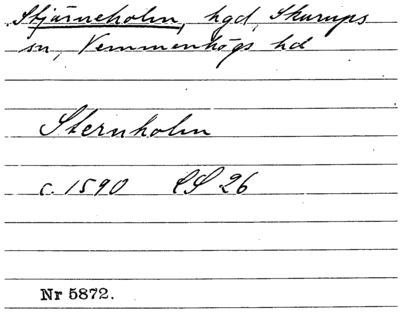 Stjärneholm, hgd, Skurups
sn, Vemmenhögs hd
Sternholm
c. 1590 LS 26
Nr 5872.